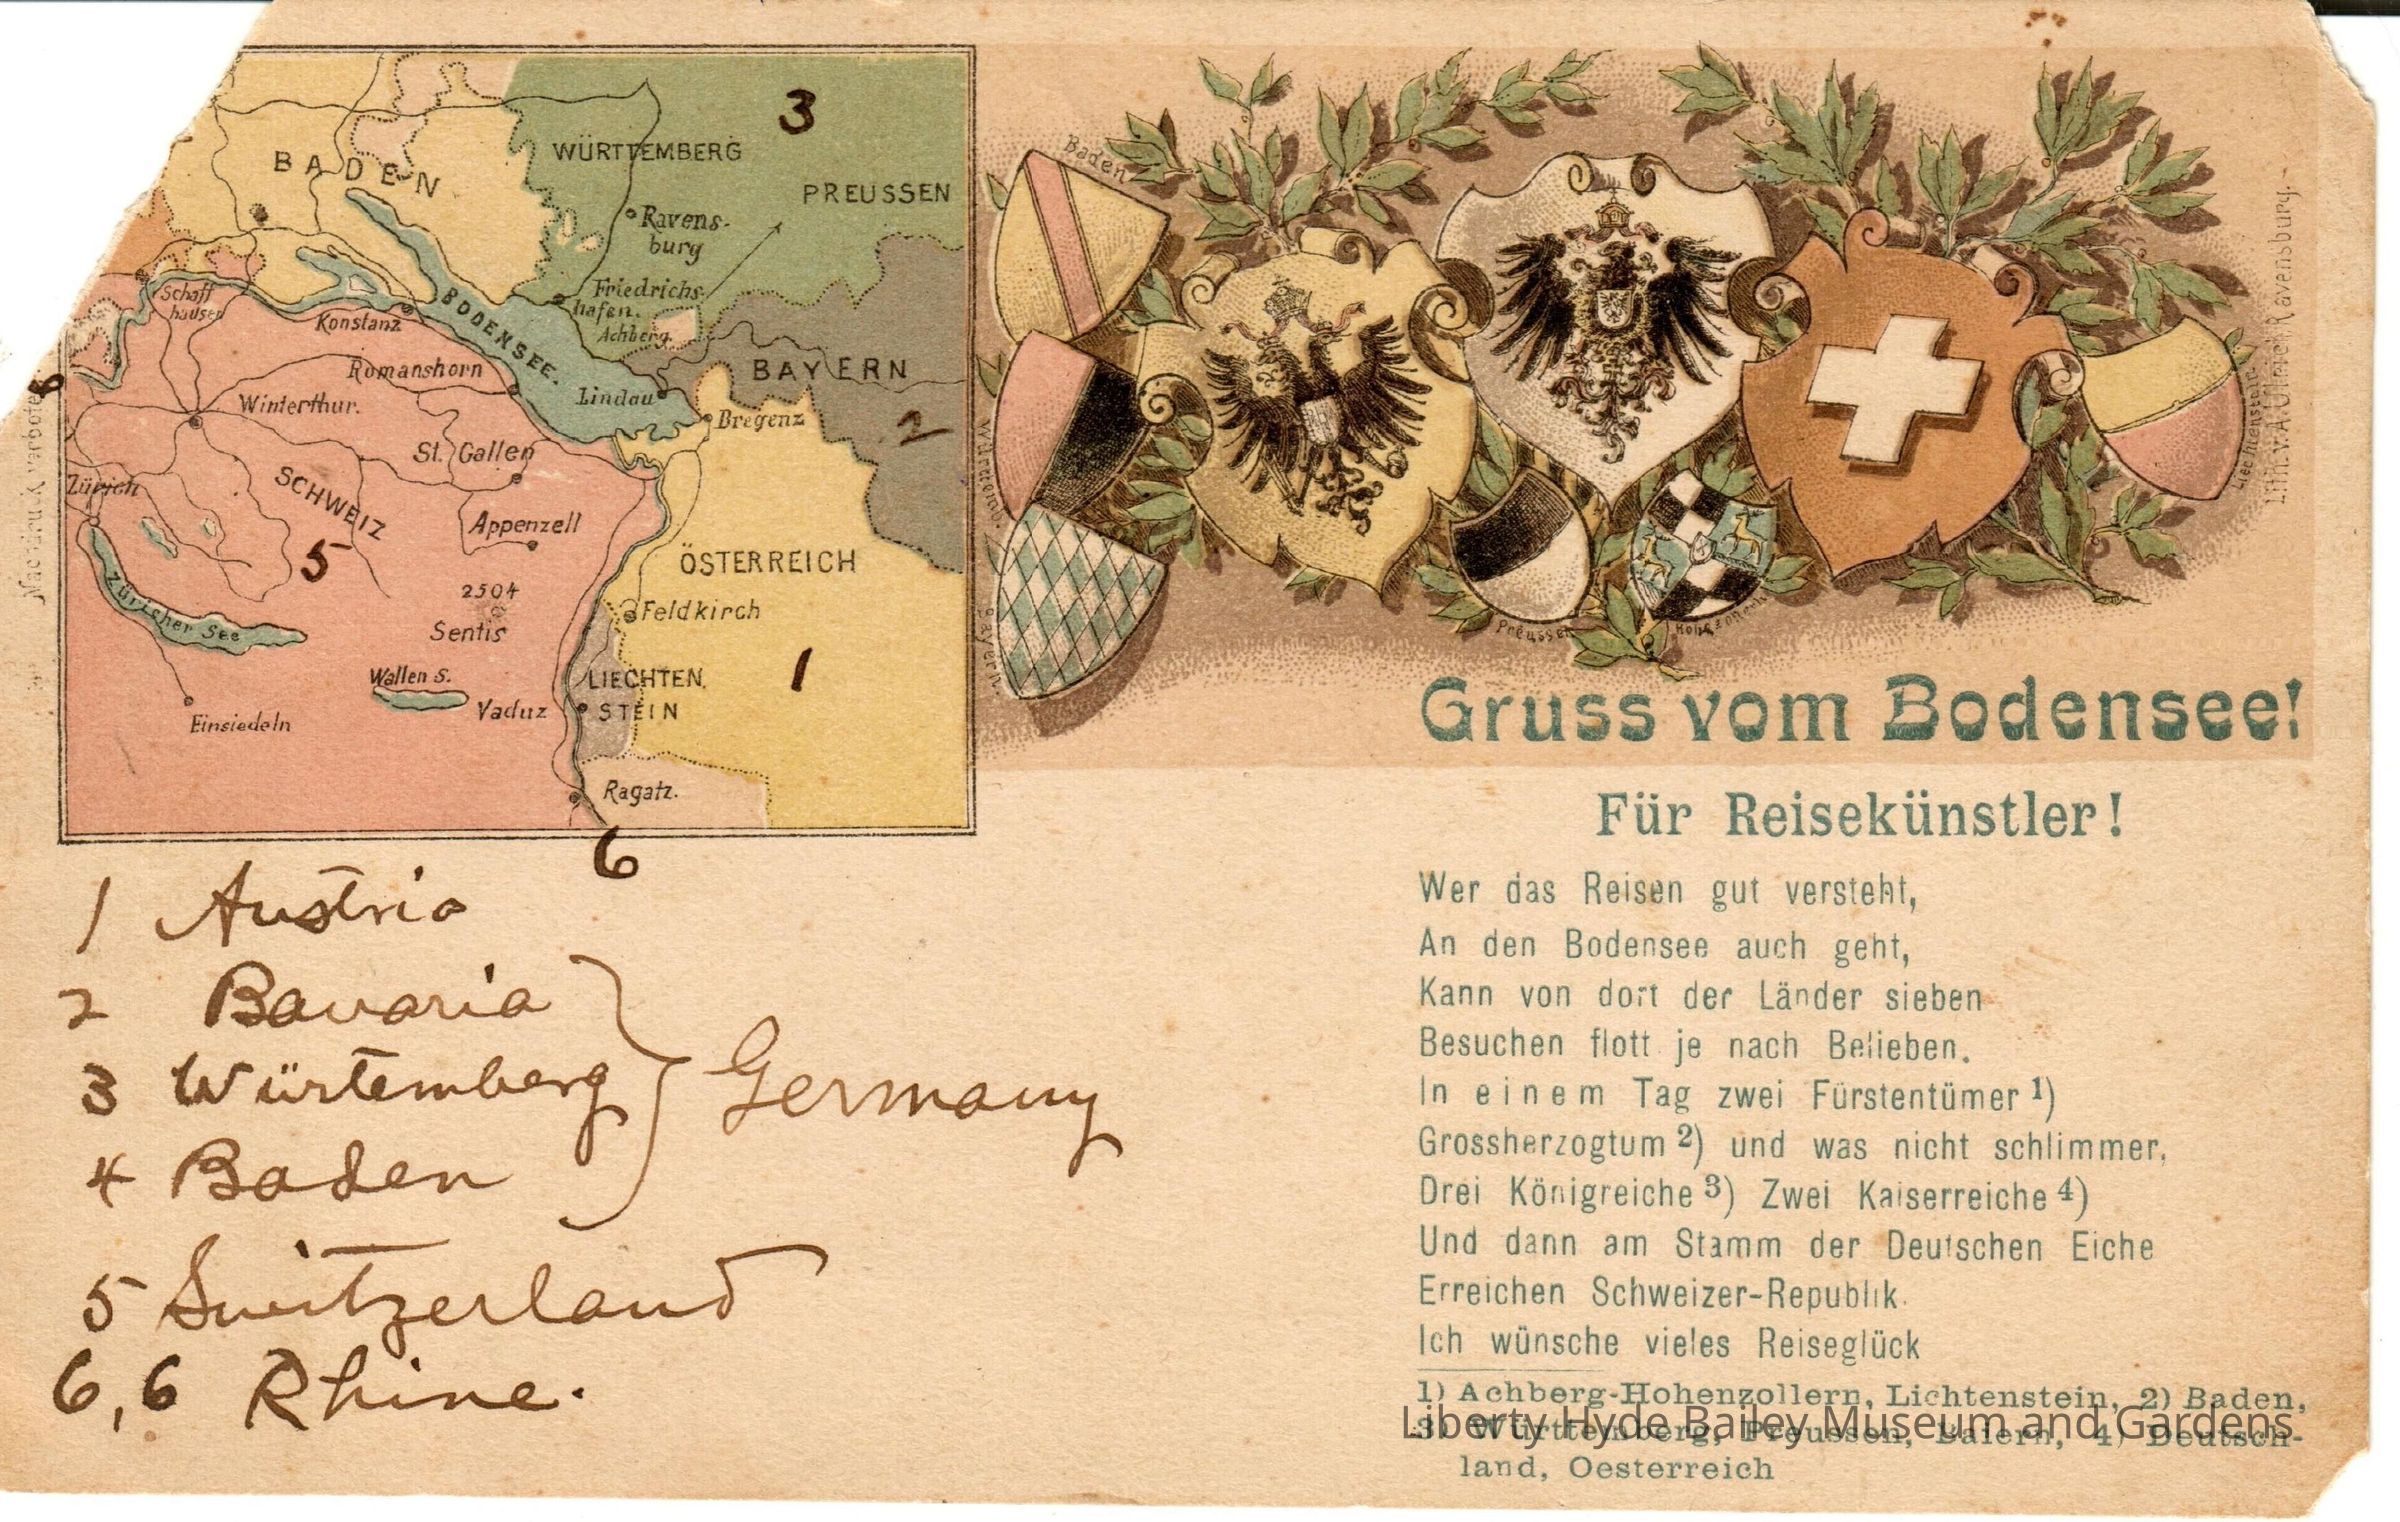 3
WÜRTTEMBERG
BADEN
PREUSSEN
Ravens-
burg
Friedrichs-
hafen.
Achberg
Schaff
hausen
Konstanz
BODENSEE.
Romanshorn
Lindau
BAYERN
2
Winterthur.
Bregenz
St. Gallen
Zürich
SCHWEIZ
5
Appenzell
ÖSTERREICH
2504
Sentis
Feldkirch
Züricher See
1
Wallen S.
LIECHTEN.
STEIN
Vaduz
Einsiedeln
Ragatz.
6
6
Nachdruck verboten
Baden
Württemb
Bayern
Preussen
Hohenzollern
Liechtenstein
Ravensburg.
Gruss vom Bodensee!
Für Reisekünstler!
Wer das Reisen gut versteht,
An den Bodensee auch geht,
Kann von dort der Länder sieben
Besuchen flott je nach Belieben.
In einem Tag zwei Fürstentümer 1)
Grossherzogtum 2) und was nicht schlimmer,
Drei Königreiche 3) Zwei Kaiserreiche 4)
Und dann am Stamm der Deutschen Eiche
Erreichen Schweizer-Republik.
Ich wünsche vieles Reiseglück
1) Achberg-Hohenzollern, Lichtenstein, 2) Baden,
3) Württemberg, Preussen, Baiern, 4) Deutsch-
land, Oesterreich
1 Austria
2 Bavaria
3 Würtemberg
Germany
4 Baden
5 Switzerland
6,6 Rhine.
Liberty Hyde Bailey Museum and Gardens